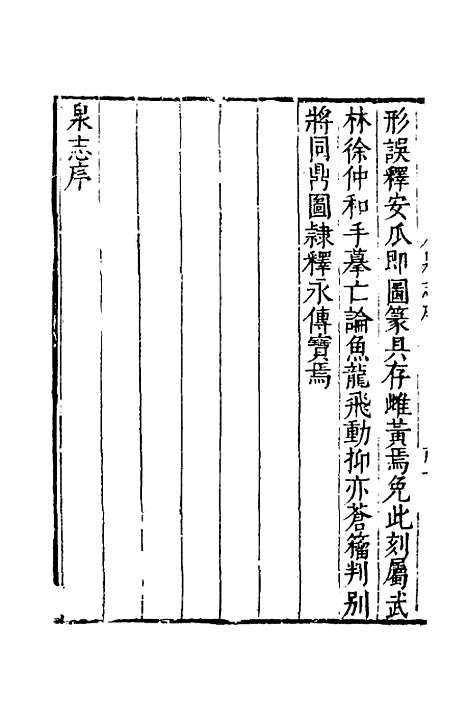 形誤釋安瓜即圖篆具存雌黃焉免此刻屬武
林徐仲和手摹亡論魚龍飛動抑亦蒼籀判别
將同鼎圖隷釋永傳寶焉
泉志序